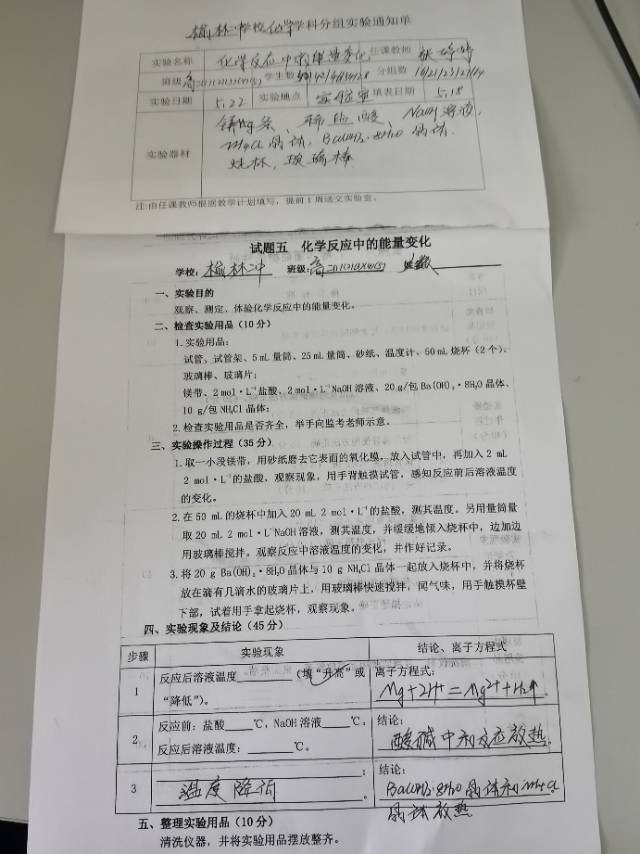 榆林二中学校化学学科分组实验通知单
实验名称 化学反应中能量变化 任课教师
班级 学生数 分组数
实验日期 5.22 实验地点 实验室 填表日期 5.18
实验器材 镁条、稀盐酸、NaOH溶液,
NH4Cl晶体, Ba(OH)2·8H2O 晶体.
烧杯, 玻璃棒
注:由任课教师根据教学计划填写,提前1周送交实验室。
试题五 化学反应中的能量变化
学校: 榆林二中 班级:
一、实验目的
观察、测定、体验化学反应中的能量变化。
二、检查实验用品(10分)
1.实验用品:
试管、试管架、5mL量筒、25mL量筒、砂纸、温度计、50mL烧杯(2个)、
玻璃棒、玻璃片;
镁带、2 mol·L⁻¹盐酸、2 mol·L⁻¹NaOH溶液、20 g/包Ba(OH)₂·8H₂O晶体、
10 g/包NH₄Cl晶体;
2.检查实验用品是否齐全,举手向监考老师示意。
三、实验操作过程(35分)
1.取一小段镁带,用砂纸磨去它表面的氧化膜,放入试管中,再加入2 mL
2 mol·L⁻¹的盐酸,观察现象,用手背触摸试管,感知反应前后溶液温度
的变化。
2.在50 mL的烧杯中加入20 mL 2 mol·L⁻¹的盐酸,测其温度。另用量筒量
取20 mL 2 mol·L⁻¹NaOH溶液,测其温度,并缓缓地倾入烧杯中,边加边
用玻璃棒搅拌。观察反应中溶液温度的变化,并作好记录。
3.将20 g Ba(OH)₂·8H₂O晶体与10 g NH₄Cl晶体一起放入烧杯中,并将烧杯
放在滴有几滴水的玻璃片上,用玻璃棒快速搅拌,闻气味,用手触摸杯壁
下部,试着用手拿起烧杯,观察现象。
四、实验现象及结论(45分)
步骤 实验现象 结论、离子方程式
1 反应后溶液温度(填“升高”或 离子方程式:
“降低”)。 Mg+2H⁺=Mg²⁺+H₂↑
2 反应前:盐酸 ℃,NaOH溶液 ℃, 结论:
反应后溶液温度: ℃。 酸碱中和反应放热.
3 ; 结论:
温度降低。 Ba(OH)2·8H2O晶体和NH4Cl
晶体放热
五、整理实验用品(10分)
清洗仪器,并将实验用品摆放整齐。